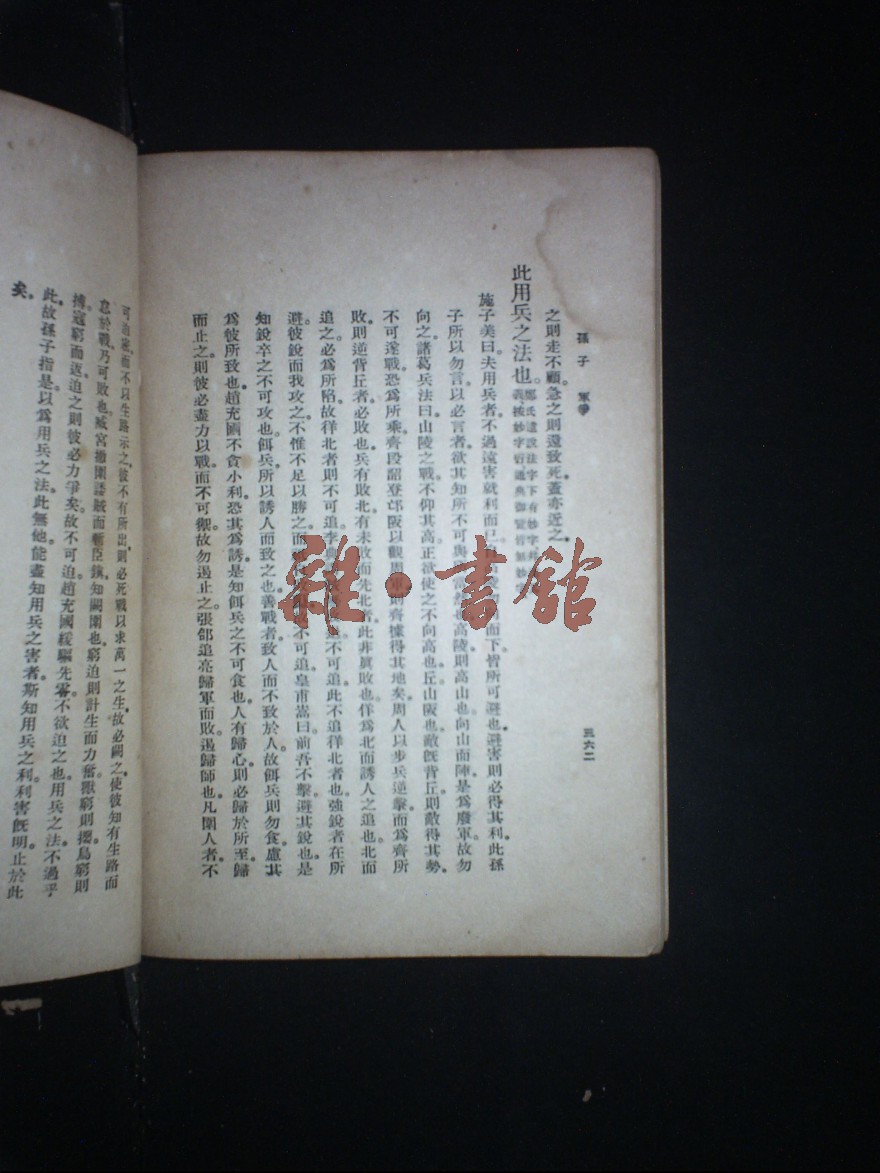 孫子 軍爭
三六二
之則走不顧。急之則還致死。蓋亦近之。
此用兵之法也。鄭氏遺說法字下有妙字
義。按妙字衍通典御覽皆無妙
施子美曰。夫用兵者不過遠害就利而已。而下皆所可避也。避害則必得其利。此孫
子所以勿言。以必言者。欲其知所不可與也。高陵則高山也。向山而陣。是爲廢軍。故勿
向之。諸葛兵法曰。山陵之戰。不仰其高。正欲使之不向高也。丘山阪也。敵旣背丘。則敵得其勢。
不可遂戰。恐爲所乘。齊段韶登邙阪以觀周軍。則齊據得其地矣。周人以步兵逆擊。而爲齊所
敗。則逆背丘者必敗也。兵有敗北。有未敗而先北者。此非眞敗也。佯爲北而誘人之追也。北而
追之。必爲所陷。故佯北者則不可追。李典不可追。此不追佯北者也。強銳者。在所
避。彼銳而我攻之。不惟不足以勝之。而不可追。皇甫嵩曰。前吾不擊。避其銳也。是
知銳卒之不可攻也。餌兵所以誘人而致之也。善戰者致人而不致於人。故餌兵則勿食。慮其
爲彼所致也。趙充國不貪小利。恐其爲誘。是知餌兵之不可食也。人有歸心。則必歸於所至。歸
而止之。則彼必盡力以戰。而不可禦。故勿遏止之。張郃追亮歸軍而敗。遏歸師也。凡圍人者。不
可迫塞。而不以生路示之。彼不有所出。則必死戰以求萬一之生。故必闕之。使彼知有生路。而
怠於戰。乃可敗也。臧宮撤圍賊而斬臣鎮。知闕圍也。窮迫則計生而力奮。獸窮則攫。鳥窮則
搏。寇窮而返迫之。則彼必力爭矣。故不可迫。趙充國緩驅先零。不欲迫之也。用兵之法。不過乎
此。故孫子指是以爲用兵之法。此無他。能盡知用兵之害者。斯知用兵之利。利害旣明。止於此
矣。
雜·書館